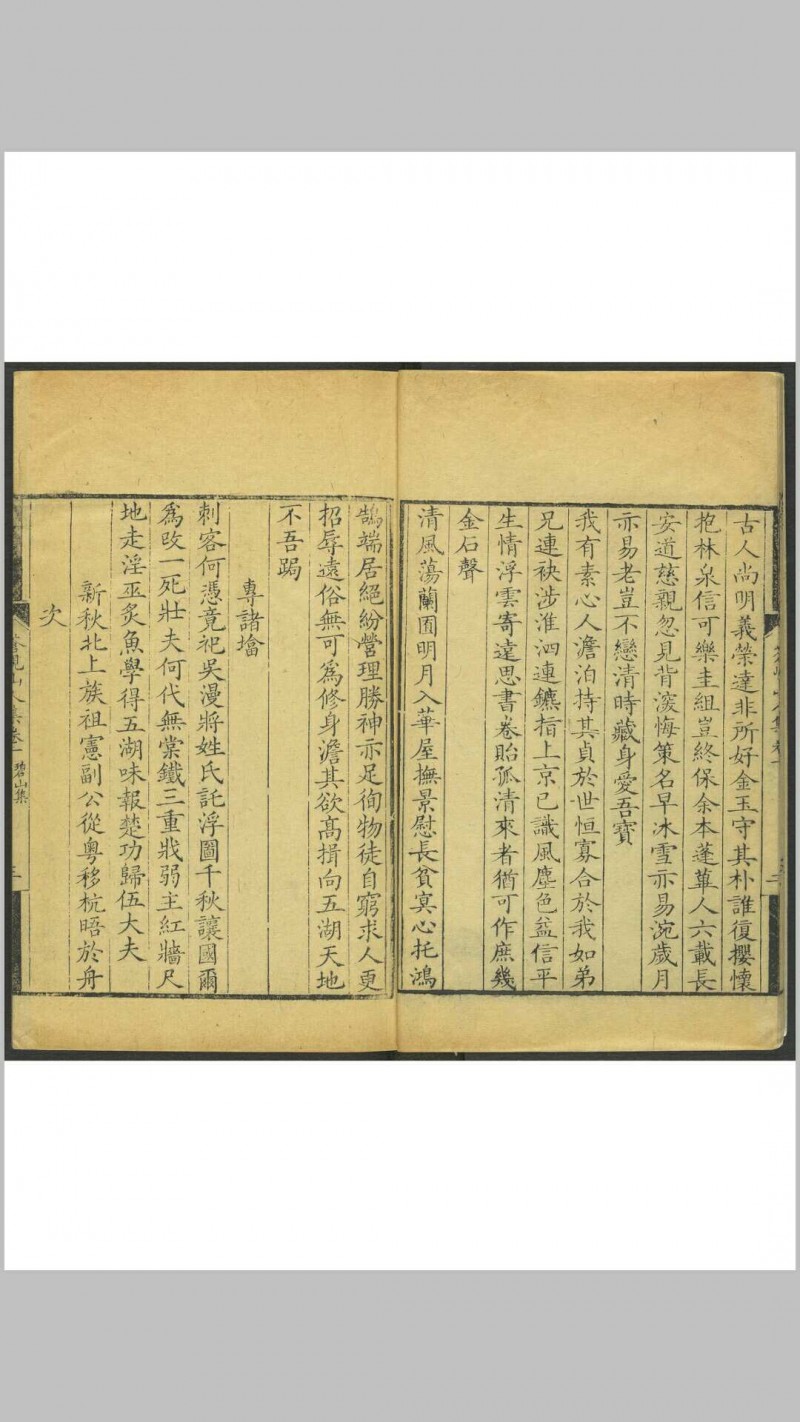 古人尚明義榮達非所好金玉守其朴誰復攖懷
抱林泉信可樂圭組豈終保余本蓬蓽人六載長
安道慈親忽見背深悔策名早冰雪亦易涴歲月
亦易老豈不戀清時藏身愛吾寶
我有素心人澹泊持其貞於世恒寡合於我如弟
兄連袂涉淮泗連鑣指上京已識風塵色益信平
生情浮雲寄遠思書卷貽孤清來者猶可作庶幾
金石聲
清風蕩蘭囿明月入華屋撫景慰長貧冥心托鴻
鵠端居絕紛營理勝神亦足徇物徒自窮求人更
招辱遠俗無可為修身澹其欲高揖向五湖天地
不吾跼
專諸墖
刺客何憑竟祀吳漫將姓氏託浮圖千秋讓國爾
為改一死壯夫何代無棠鐵三重戕弱主紅牆尺
地走淫巫炙魚學得五湖味報楚功歸伍大夫
新秋北上族祖憲副公從粵移杭晤於舟
次
山人集卷一 碧山集